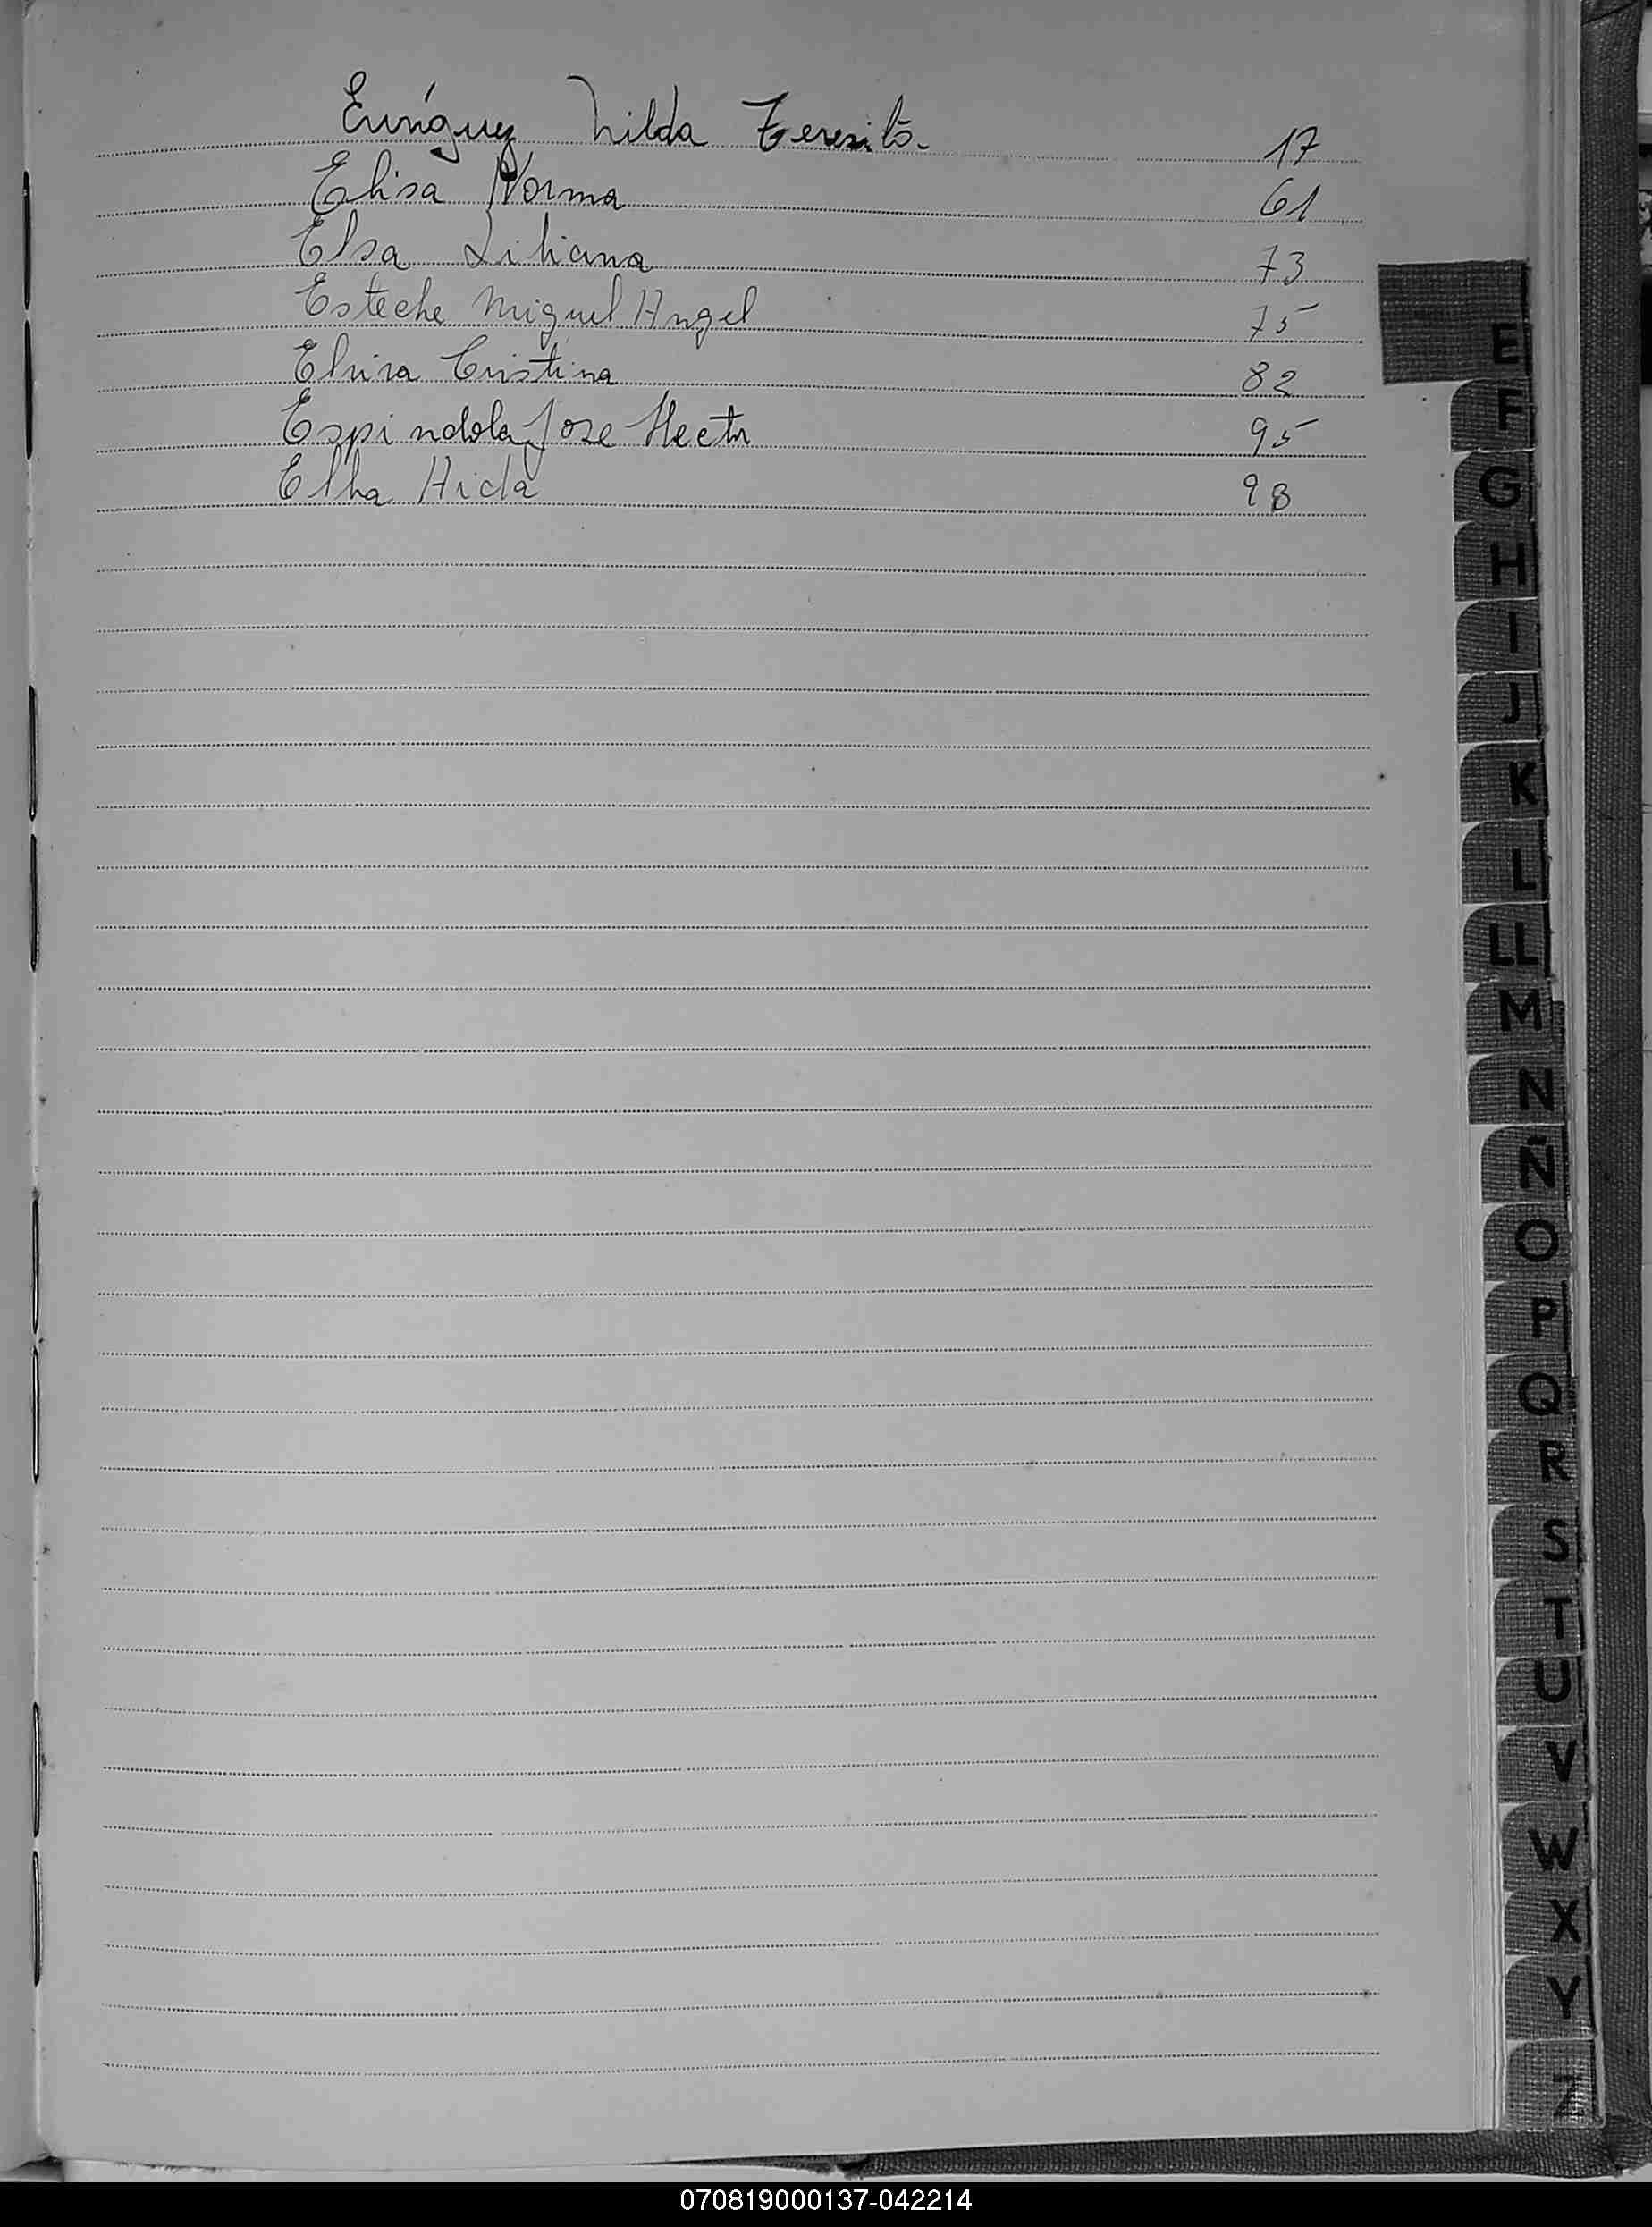 Enríquez Nilda Teresita. 17
Elisa Norma 61
Elsa Liliana 73
Esteche Miguel Angel 75
Elvira Cristina 82
Espindola Jose Hector 95
Elba 98
E
F
G
H
I
J
K
L
LL
M
N
Ñ
O
P
Q
R
S
T
U
V
W
X
Y
Z
070819000137-042214